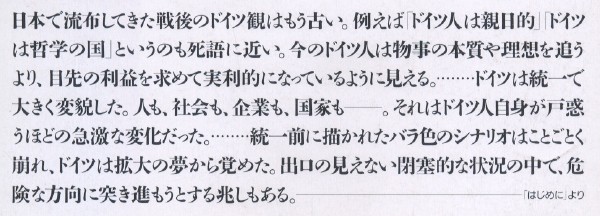 日本で流布してきた戦後のドイツ観はもう古い。例えば「ドイツ人は親日的」「ドイツ
は哲学の国」というのも死語に近い。今のドイツ人は物事の本質や理想を追う
より、目先の利益を求めて実利的になっているように見える。………ドイツは統一で
大きく変貌した。人も、社会も、企業も、国家も――。それはドイツ人自身が戸惑
うほどの急激な変化だった。………統一前に描かれたバラ色のシナリオはことごとく
崩れ、ドイツは拡大の夢から覚めた。出口の見えない閉塞的な状況の中で、危
険な方向に突き進もうとする兆しもある。――「はじめに」より